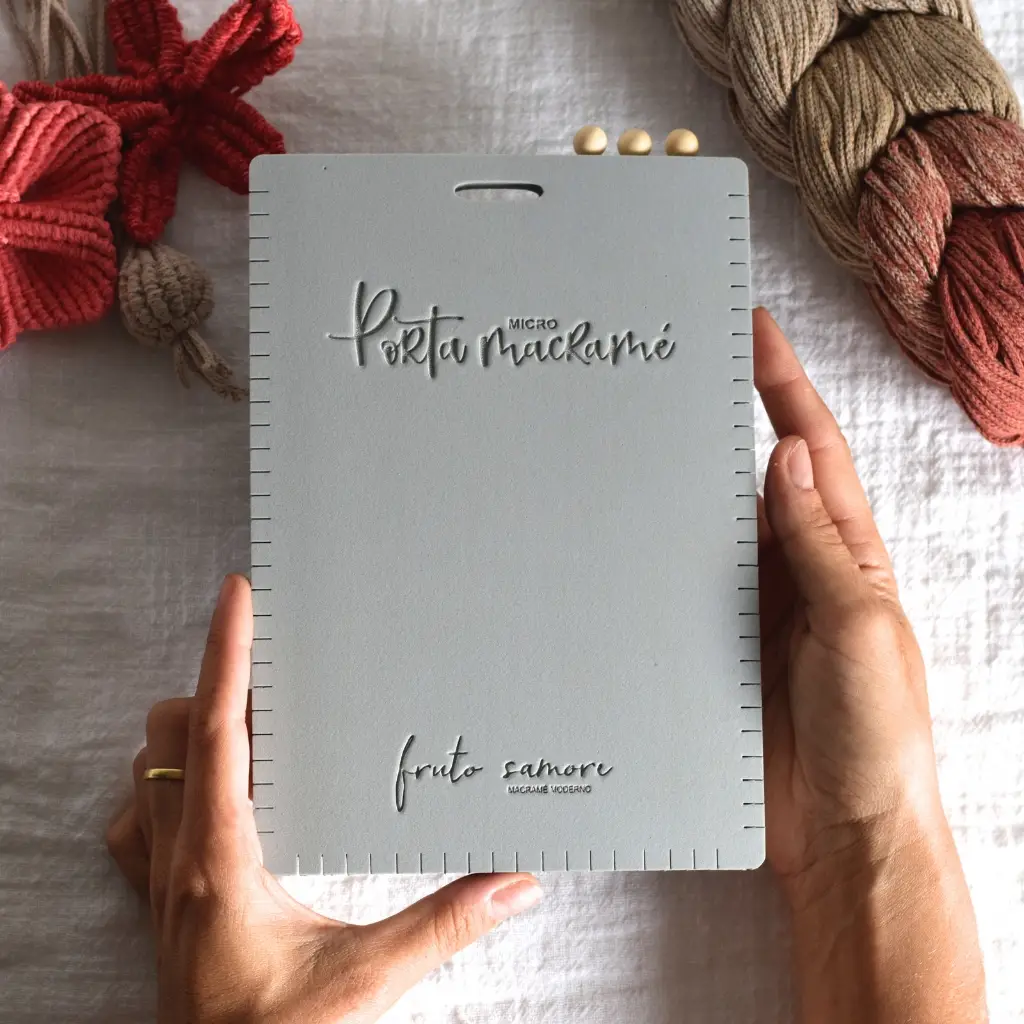 MICRO
Porta macramé
fruto samore
MACRAMÉ MODERNO